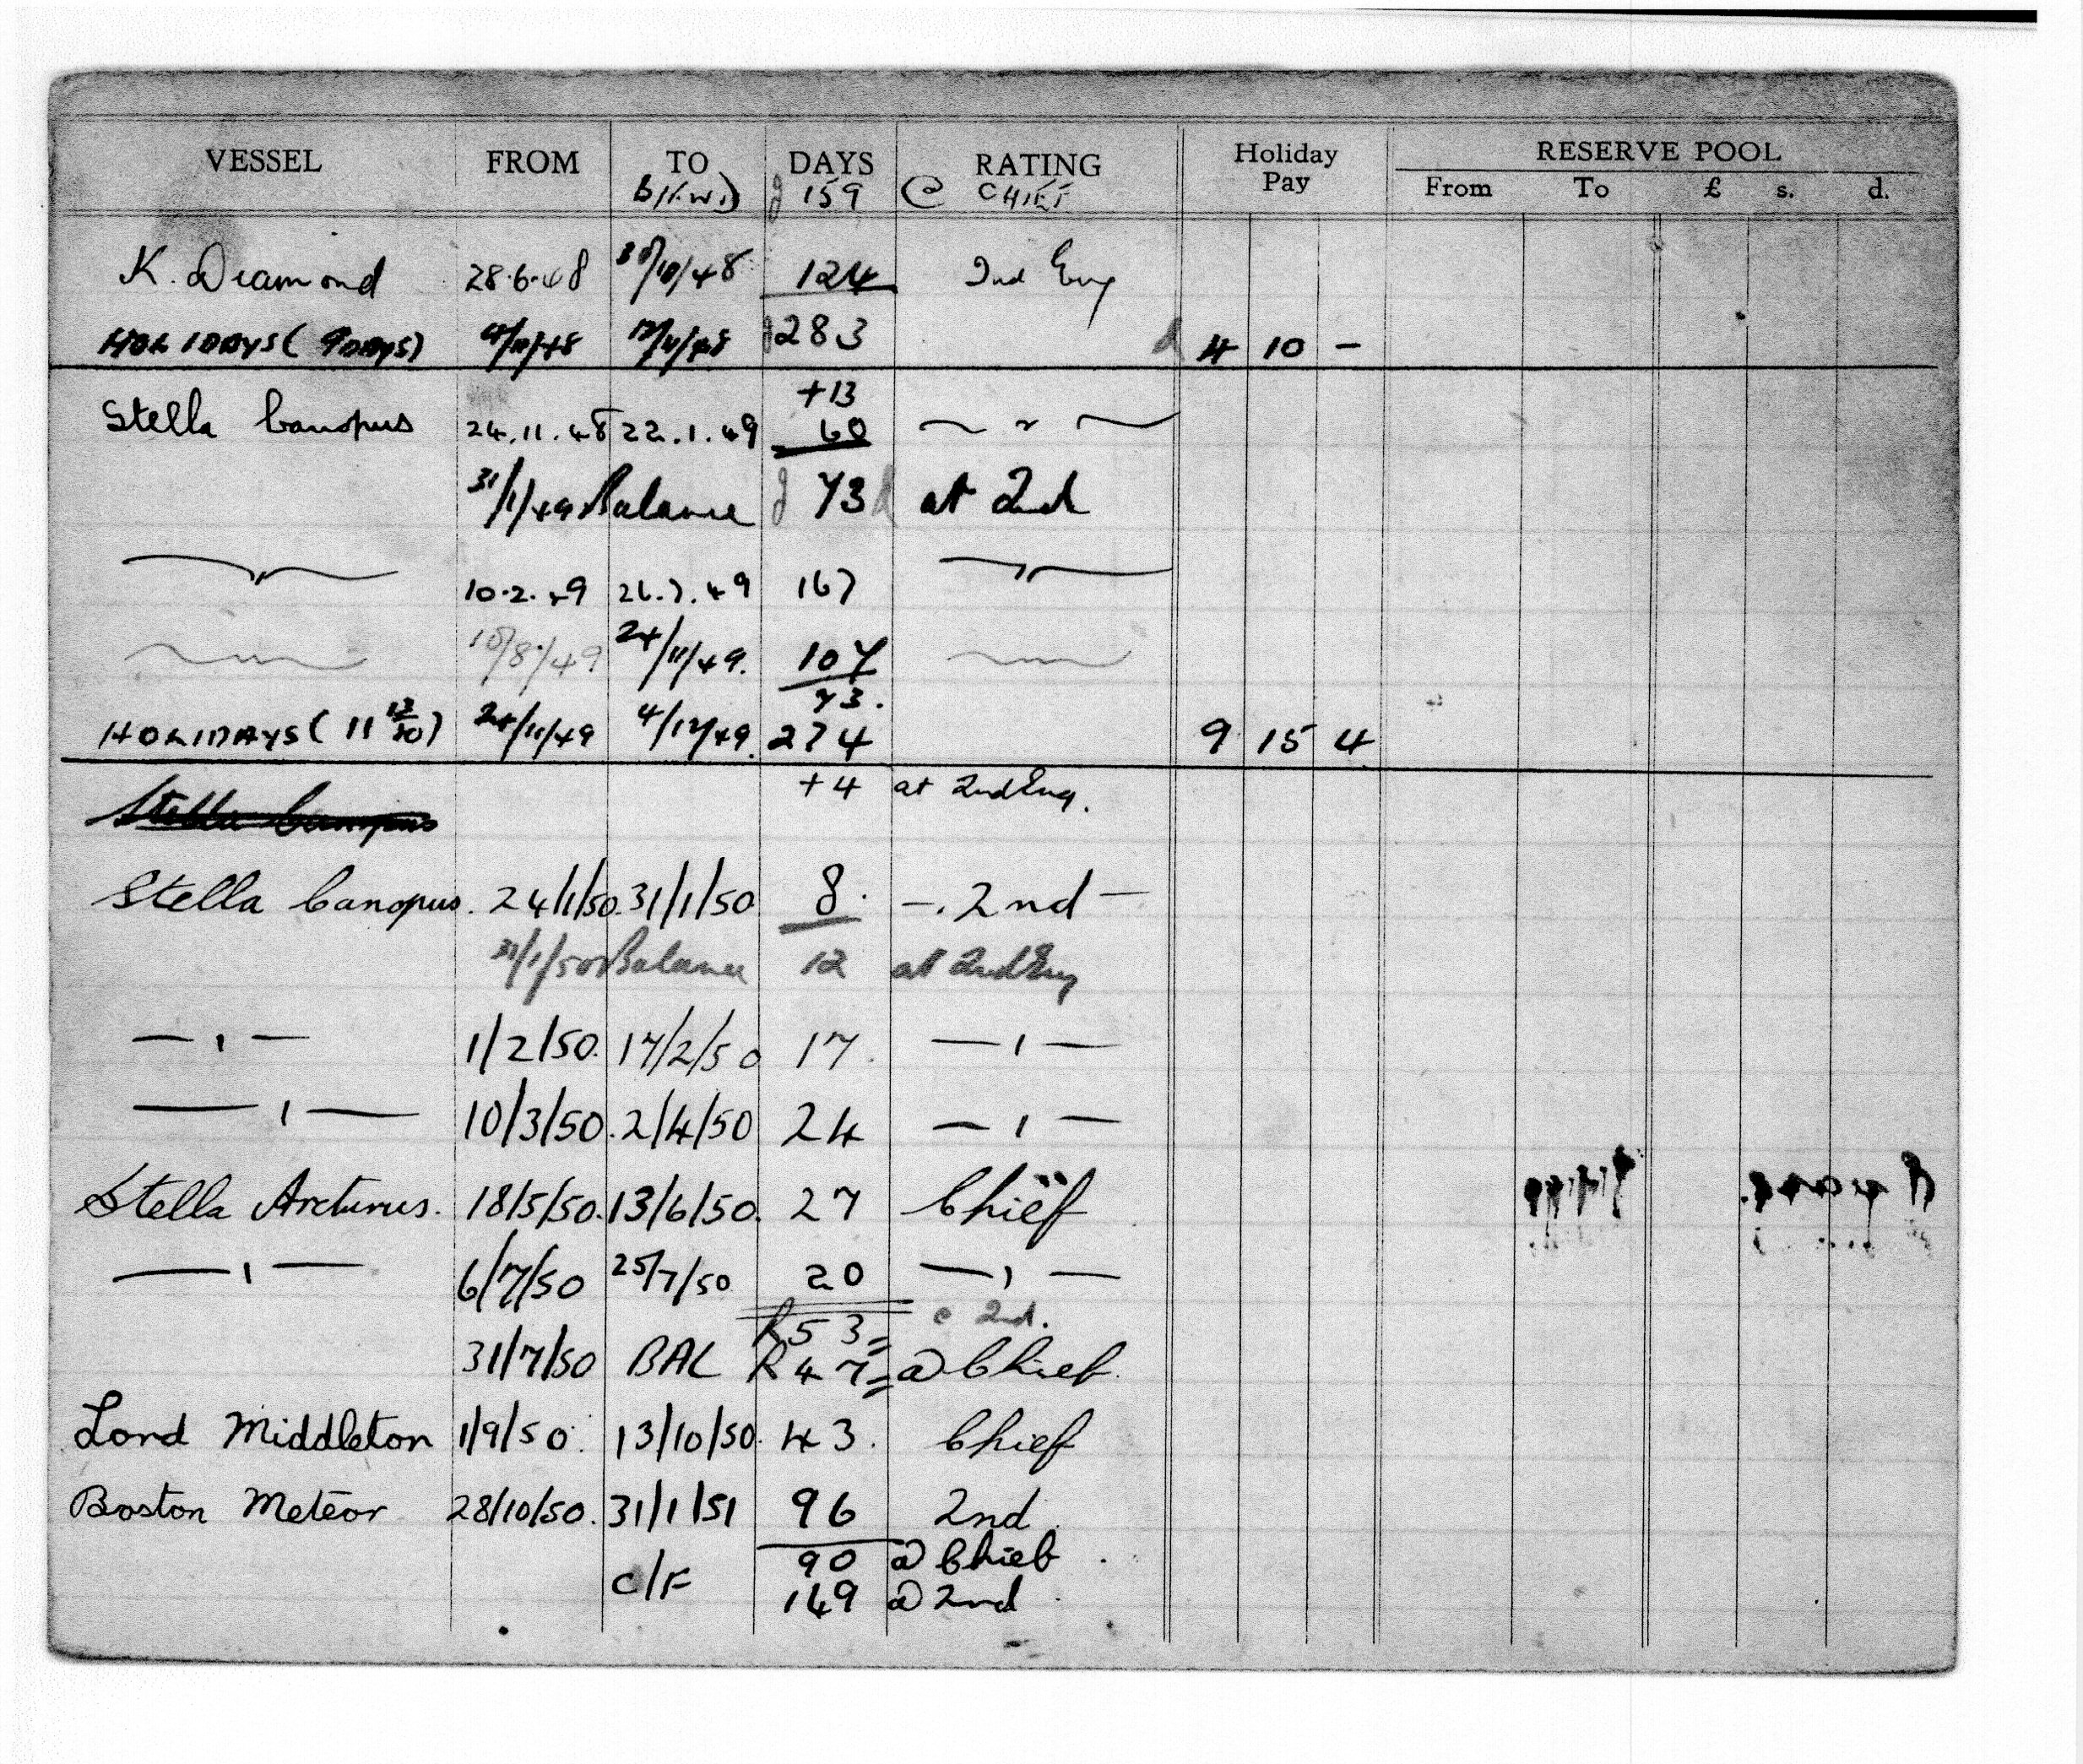 VESSEL FROM TO DAYS RATING Holiday Pay RESERVE POOL
From To £ s. d.
159 @ CHIEF
K. Diamond 28.6.48 30/10/48 124 2nd Eng
HOLIDAYS (9 DAYS) 283 4 10 -
+13
Stella Canopus 24.11.48 22.1.49 60 — " —
31/1/49 Balance 73 at 2nd
— " — 10.2.49 26.7.49 167 — " —
— " — 10/8/49 24/11/49. 107 — " —
73.
HOLIDAYS (11 13/30) 24/11/49 4/12/49. 274 9 15 4
+4 at 2nd Eng.
Stella Canopus
Stella Canopus. 24/1/50. 31/1/50 8. —. 2nd —
31/1/50 Balance 12 at 2nd Eng
— " — 1/2/50. 17/2/50 17. — " —
— " — 10/3/50. 2/4/50 24 — " —
Stella Arcturus. 18/5/50. 13/6/50. 27 Chief
— " — 6/7/50 25/7/50 20 — " —
53 = @ 2nd.
31/7/50 BAL 47 = @ Chief.
Lord Middleton 1/9/50. 13/10/50. 43. Chief
Boston Meteor 28/10/50. 31/1/51 96 2nd.
90 @ Chief.
C/F 149 @ 2nd.